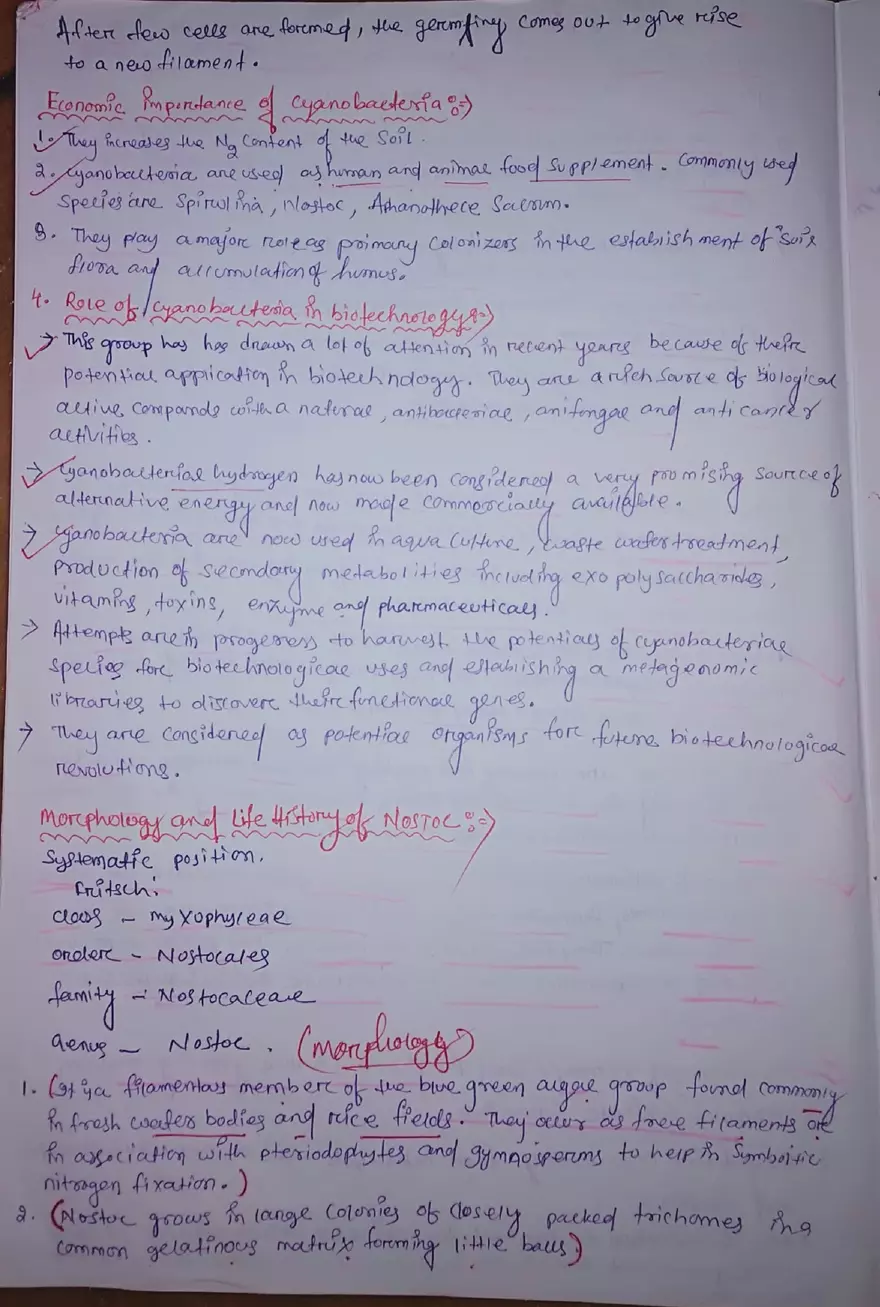 After few cells are foremed, the geremling comes out to give reise
to a new filament.
Economic Imporetance of cyanobacteria :=>
1. They increases the N2 content of the Soil.
2. Cyanobacteria are used as human and animal food supplement. Commonly used
Species are Spirulina, Nostoc, Aphanothece Sacrum.
3. They play a majore role as primary colonizers in the establishment of soil
flora and accumulation of humus.
4. Role of cyanobacteria in biotechnology :=>
→ This group has has drawn a lot of attention in recent years because of theire
potential application in biotechnology. They are a rich source of biological
active compands with a natural, antibacterial, anifongal and anticancer
activities.
→ Cyanobacterial hydrogen has now been considered a very promising source of
alternative energy and now made commercially available.
→ Cyanobacteria are now used in aqua culture, waste water treatment,
production of secondary metabolities including exo polysaccharides,
vitamins, toxins, enzyme and pharmaceuticals.
→ Attempts are in progeress to harvest the potentials of cyanobacterial
species fore biotechnological uses and establishing a metagenomic
libraries to discovere theire functional genes.
→ They are considered as potential organisms fore future biotechnological
revolutions.
Morephology and Life History of NOSTOC :=>
Systematic position.
Fritsch.
class - myxophyceae
ordere - Nostocales
family - Nostocaceae
Genus - Nostoc. (Morephology)
1. (It is a filamentous membere of the blue green algae group found commonly
in fresh water bodies and rice fields. They occur as free filaments or
in association with pteriodophytes and gymnosperms to help in Symboitic
nitrogen fixation.)
2. (Nostoc grows in large colonies of closely packed trichomes in a
common gelatinous matrix foreming little balls)